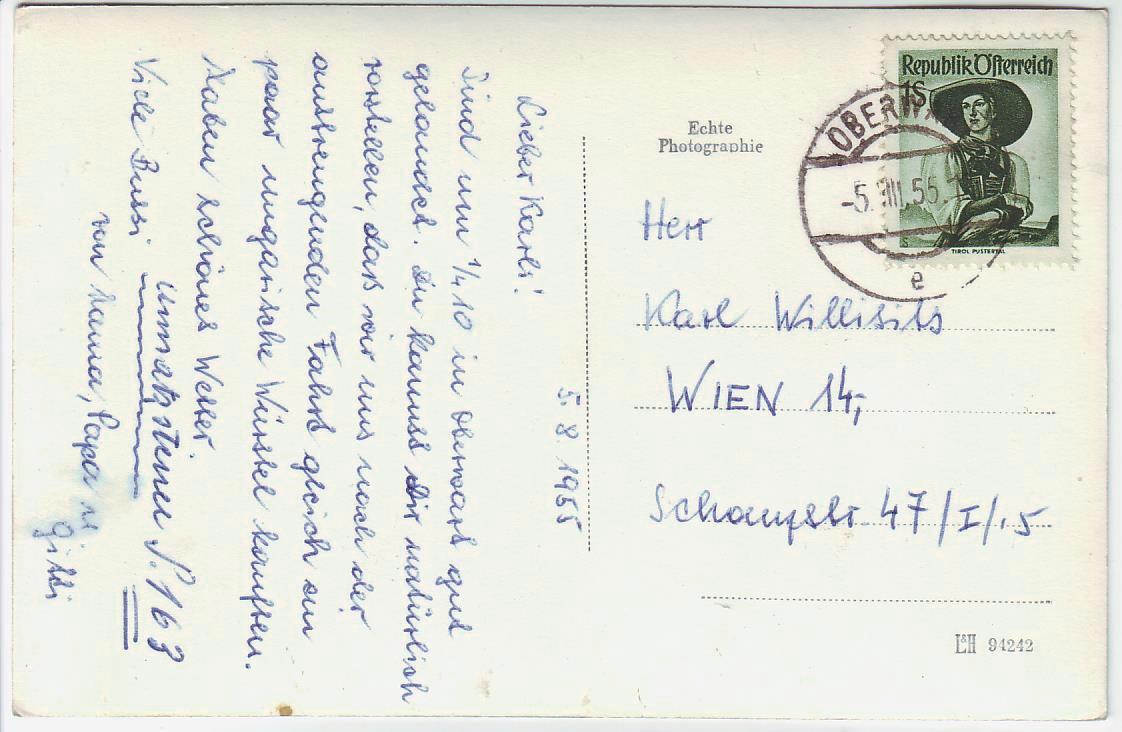 Lieber Karli!
Sind um 1/4 10 in Oberwart gut
gelandet. Du kannst dir natürlich
vorstellen, daß wir uns nach der
anstrengenden Fahrt gleich ein
paar ungarische Würstel kauften.
Haben schönes Wetter.
Viele Bussi
von Mama, Papa u
Gitti
S. 163
5. 8. 1955
Echte
Photographie
Republik Österreich
1S
TIROL PUSTERTAL
OBERW
-5. VIII. 55.
e
Herr
Karl Willisits
WIEN 14,
47/I/.5
L&H 94242